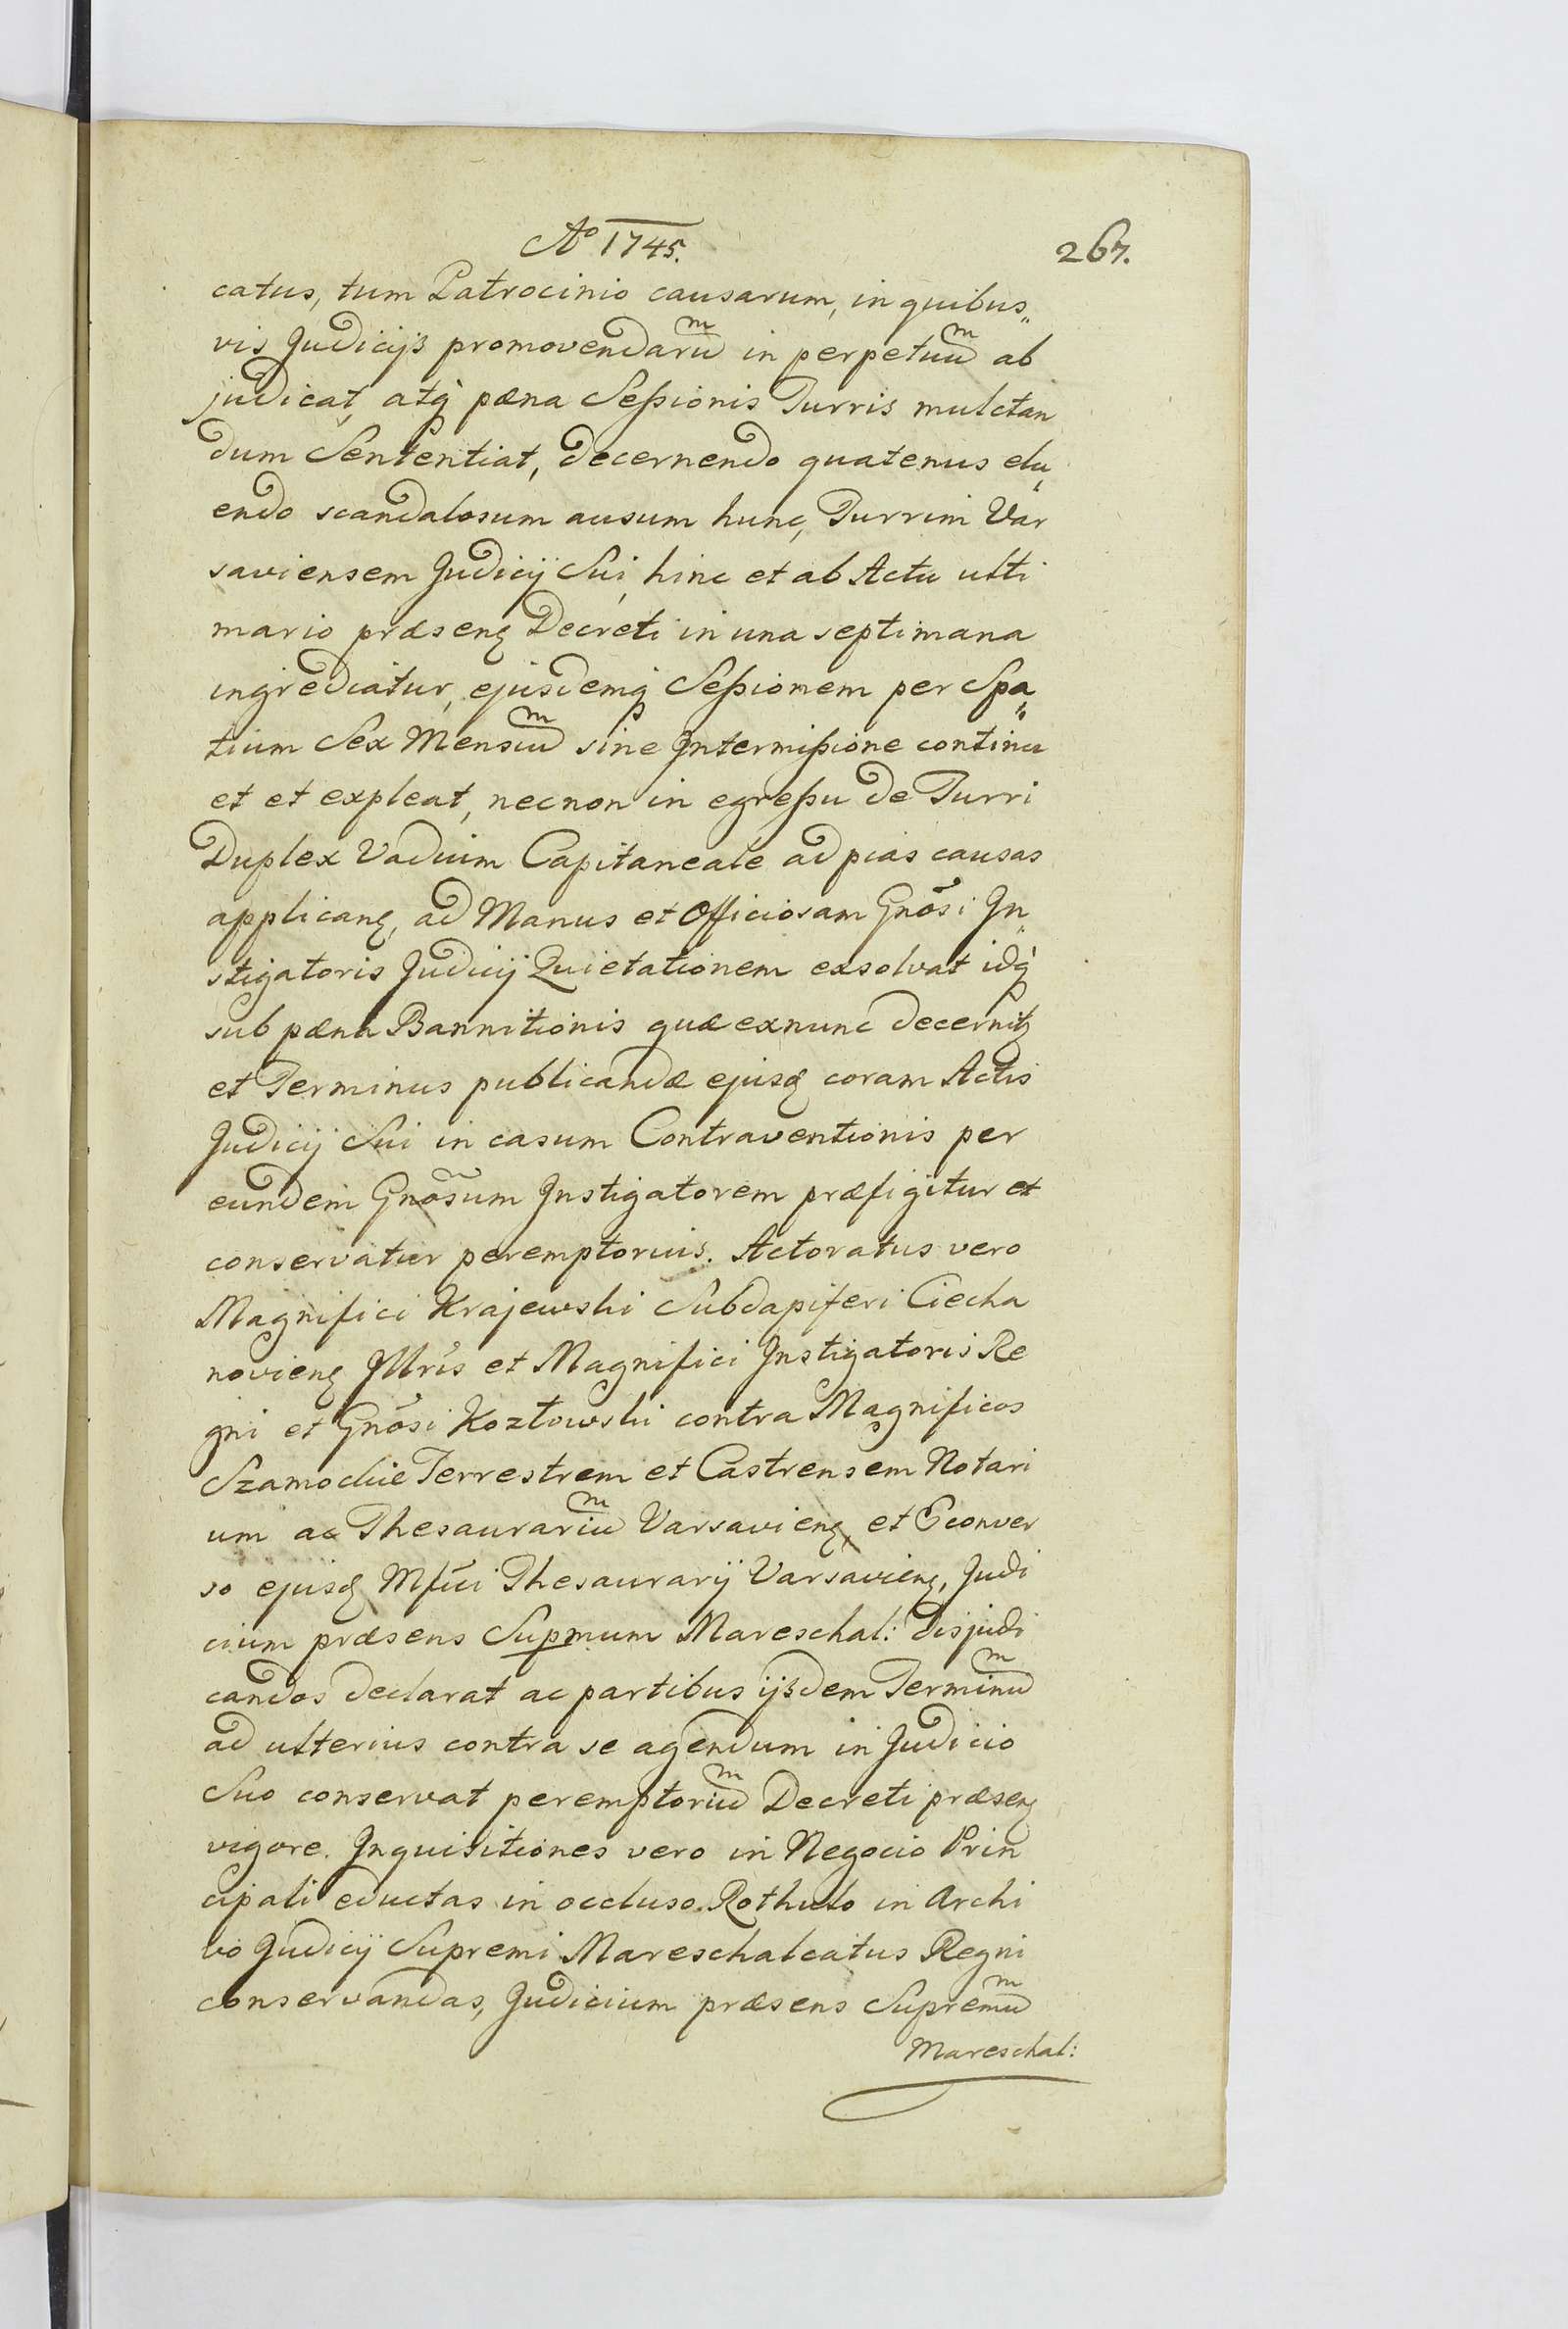 Aº 1745.
267.
catus, tum Patrocinio causarum, in quibus„
vis Judicijs promovendarũ in perpetuũ ab
judicat, atq̀ pæna Seßionis Turris mulctan
dum Sententiat, decernendo quatenus elu„
endo scandalosum ausum hunc, Turrim Var
saviensem Judicij Sui, hinc et ab Actu ulti
mario præsenꝫ Decreti in una septimana
ingrediatur, ejusdemq̀ Seßionem per Spa„
tium Sex Mensiũ sine Intermißione continu
et et expleat, necnon in egreßu de Turri
Duplex Vadium Capitaneale ad pias causas
applicanꝫ, ad Manus et Officiosam Gnõsi In„
stigatoris Judicij Quietationem exsolvat idq̀
sub pæna Bannitionis quæ exnunc decernitꝫ
et Terminus publicandæ ejusꝫ coram Actis
Judicij Sui in casum Contraventionis per
eundem Gnõsum Instigatorem præfigitur et
conservatur peremptorius. Actoratus vero
Magnifici Krajewski Subdapiferi Ciecha
novienꝫ Illris et Magnifici Instigatoris Re
gni et Gnõsi Kozłowski contra Magnificos
Szamockie Terrestrem et Castrensem Notari
um ac Thesaurariũ Varsavienꝫ, et Econver
so ejusꝫ Mfici Thesaurarij Varsavienꝫ, Judi
cium præsens Supmum Mareschal: disjudi
candos declarat ac partibus ijsdem Terminũ
ad ulterius contra se agendum in Judicio
Suo conservat peremptoriũ Decreti præsenꝫ
vigore. Inquisitiones vero in Negocio Prin
cipali eductas in occluso Rothulo in Archi
vo Judicij Supremi Mareschalcatus Regni
conservandas, Judicium præsens Supremũ
Mareschal: